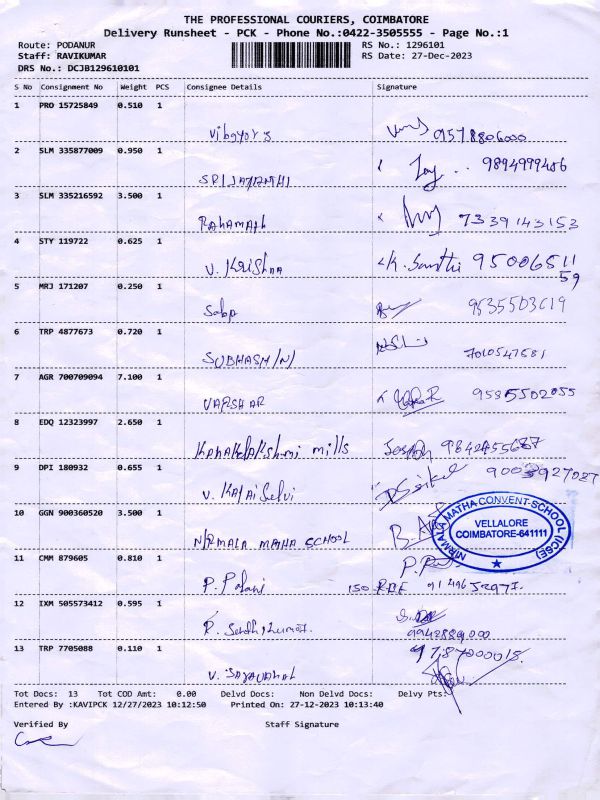 THE PROFESSIONAL COURIERS, COIMBATORE
Delivery Runsheet - PCK - Phone No.:0422-3505555 - Page No.:1
Route: PODANUR RS No.: 1296101
Staff: RAVIKUMAR RS Date: 27-Dec-2023
DRS No.: DCJB129610101
S No Consignment No Weight PCS Consignee Details Signature
1 PRO 15725849 0.510 1
2 SLM 335877009 0.950 1
9894999406
3 SLM 335216592 3.500 1
7339143153
4 STY 119722 0.625 1
V. Krishna K. Santhi 95006511
59
5 MRJ 171207 0.250 1
9535503619
6 TRP 4877673 0.720 1
SUBHASHINI 7010547681
7 AGR 700709094 7.100 1
9585502055
8 EDQ 12323997 2.650 1
mills
9 DPI 180932 0.655 1
V. Kalaiselvi
10 GGN 900360520 3.500 1
NIRMALA MATHA SCHOOL
NIRMALA MATHA CONVENT SCHOOL (ICSE)
VELLALORE
COIMBATORE-641111
11 CMM 879605 0.810 1
P. Palani
12 IXM 505573412 0.595 1
9942889000
13 TRP 7705088 0.110 1
Tot Docs: 13 Tot COD Amt: 0.00 Delvd Docs: Non Delvd Docs: Delvy Pts:
Entered By :KAVIPCK 12/27/2023 10:12:50 Printed On: 27-12-2023 10:13:40
Verified By Staff Signature